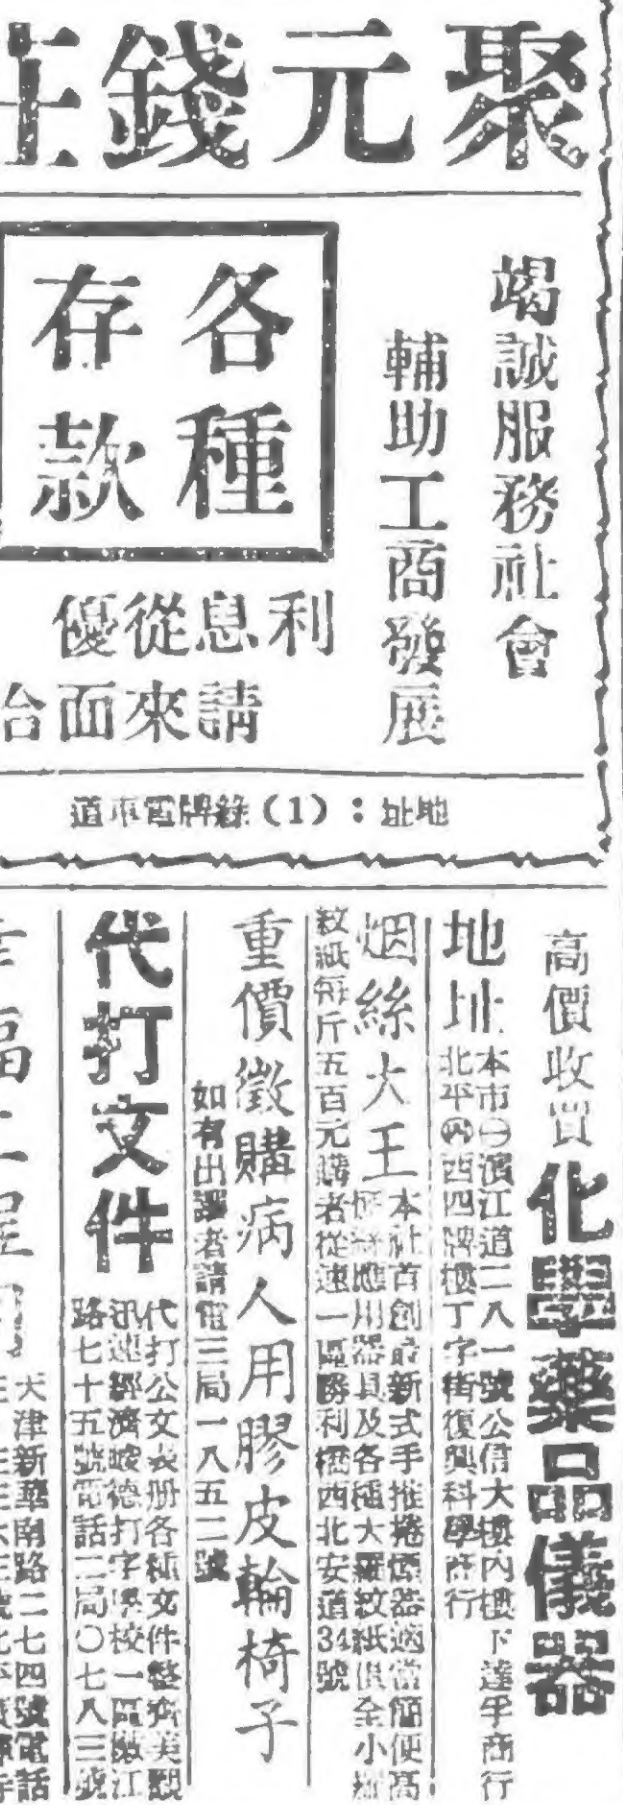 聚元錢莊
竭誠服務社會
輔助工商發展
各種
存款
利息從優
請來面洽
地址：(1)綠牌電車道
高價收買化學藥品儀器
地址
本市㊀濱江道二八一號公信大樓內樓下達孚商行
北平㊁西四牌樓丁字街復興科學商行
烟絲大王
本社首創最新式手推捲煙器適當簡便高
應用器具及各種大羅紋紙俱全小
紋紙每斤五百元購者從速一區勝利橋西北安道34號
重價徵購病人用膠皮輪椅子
如有出讓者請電三局一八五二號
代打文件
代打公文表册各種文件整齊美觀
迅速經濟峻德打字學校一區嫩江
路七十五號電話二局〇七八三號
天津新華南路二七四號電話